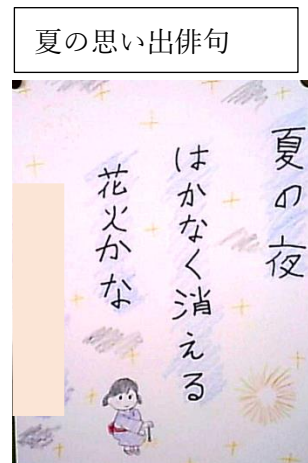 夏の思い出俳句
夏の夜
はかなく消える
花火かな